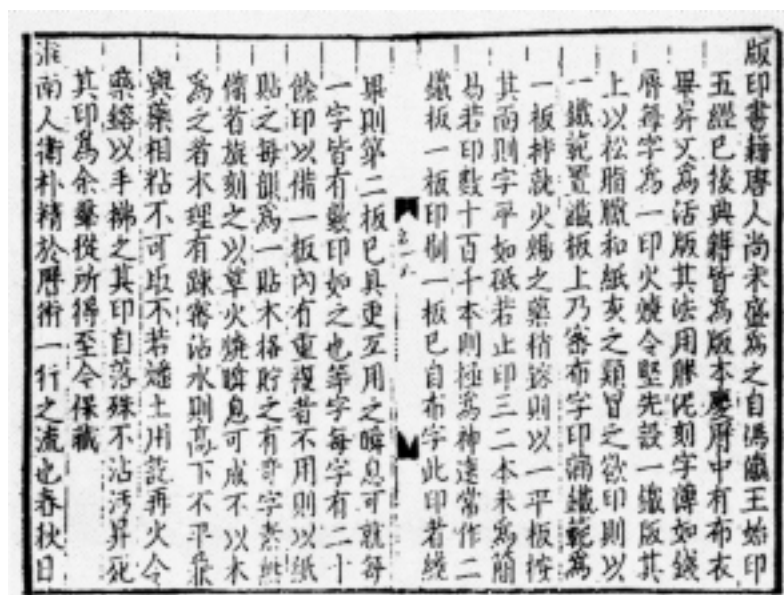 版印書籍唐人尚未盛爲之自馮瀛王始印
五經已後典籍皆爲版本慶曆中有布衣
畢昇又爲活版其法用膠泥刻字薄如錢
脣每字爲一印火燒令堅先設一鐵版其
上以松脂臘和紙灰之類冒之欲印則以
一鐵範置鐵板上乃密布字印滿鐵範爲
一板持就火煬之藥稍鎔則以一平板按
其面則字平如砥若止印三二本未爲簡
易若印數十百千本則極爲神速常作二
鐵板一板印刷一板已自布字此印者纔
畢則第二板已具更互用之瞬息可就每
一字皆有數印如之也等字每字有二十
餘印以備一板內有重複者不用則以紙
貼之每韻爲一貼木格貯之有奇字素無
備者旋刻之以草火燒瞬息可成不以木
爲之者木理有疎密沾水則高下不平兼
與藥相粘不可取不若燔土用訖再火令
藥鎔以手拂之其印自落殊不沾汚昇死
其印爲余羣從所得至今保藏
淮南人衛朴精於曆術一行之流也春秋日